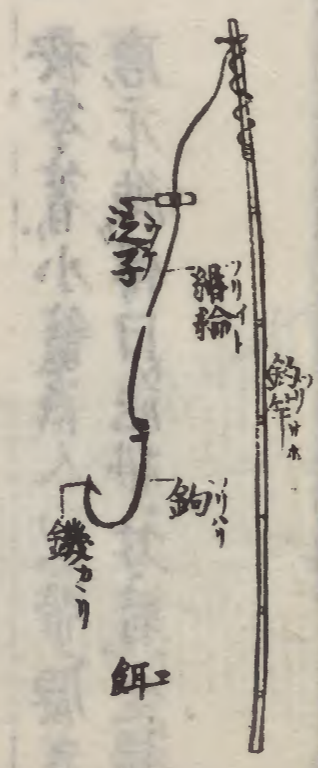 釣竿ツリサホ
緡綸ツリイト
泛子ウケ
鉤ツリハリ
鐖カヽリ
餌エ